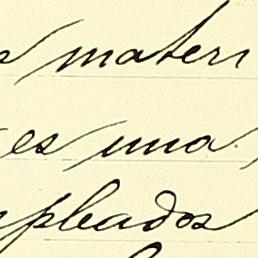 s materi
es una
mpleados